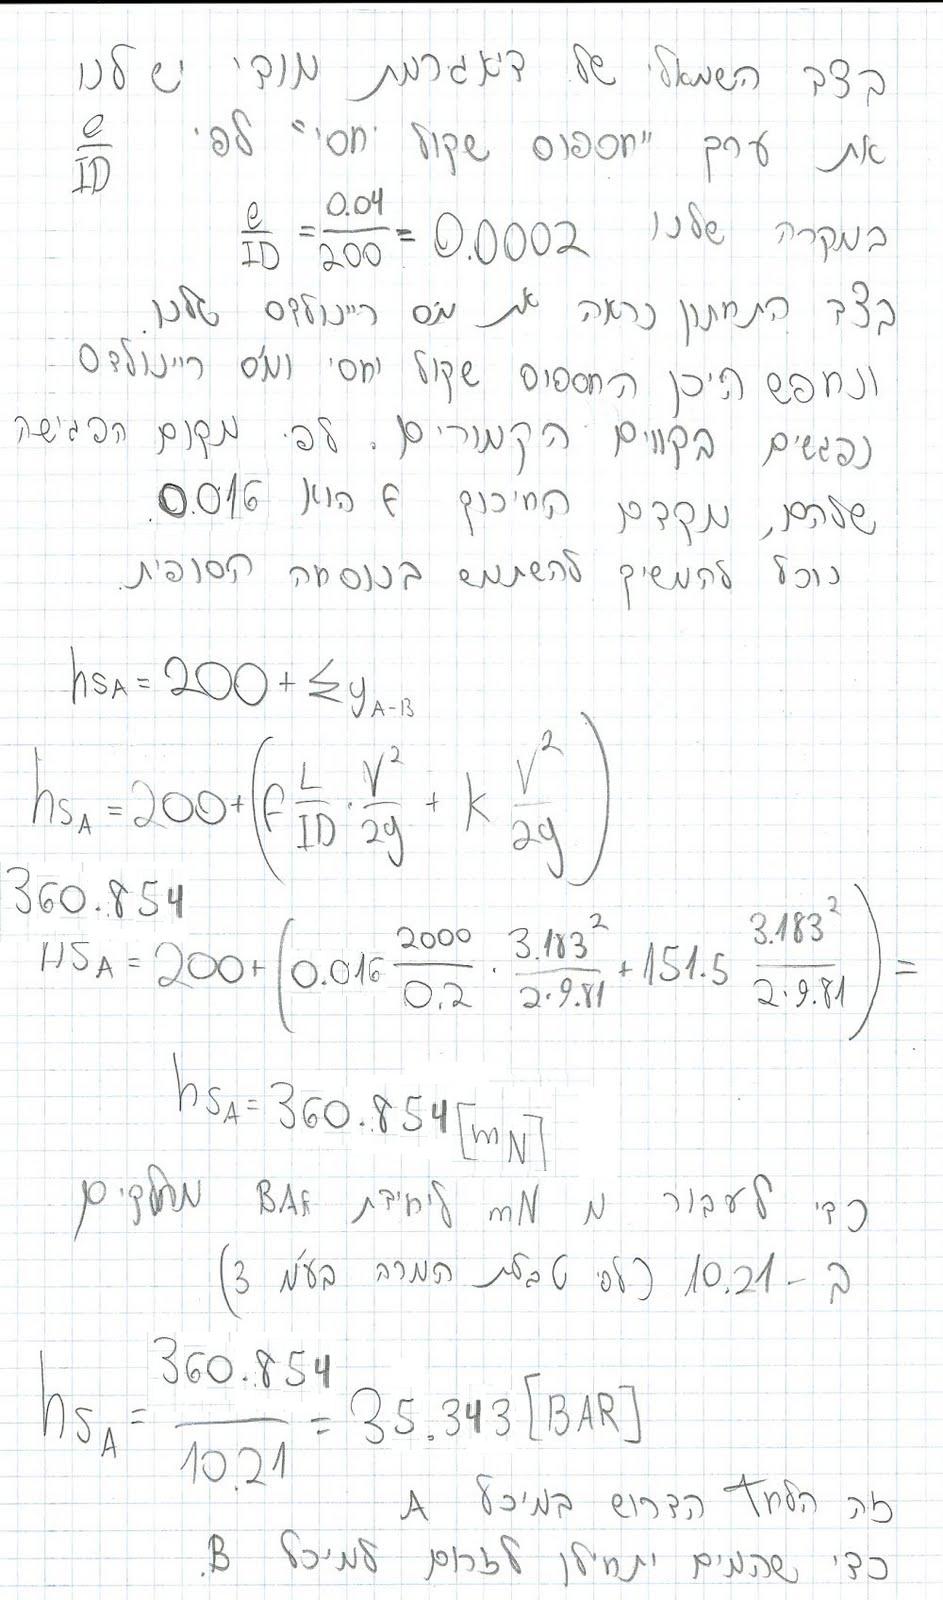 בצב השמאלי של דיאגרמת מודי יש לנו
את ערך "חספוס שקול יחסי" לפי e/ID
במקרה שלנו e/ID = 0.04/200 = 0.0002
בצב התחתון נראה את מס ריינולדס שלנו.
ונחפש היכן החספוס שקול יחסי ומס ריינולדס
נפגשים בקווים הקמורים. לפי מקום הפגישה
שלהם, מקדם החיכוך f הוא 0.016
נוכל להמשיך להשתמש בנוסחה הסופית.
hSA = 200 + ΣyA-B
hSA = 200 + (f L/ID · V²/2g + k V²/2g)
360.854
HSA = 200 + (0.016 2000/0.2 · 3.183²/2·9.81 + 151.5 3.183²/2·9.81) =
hSA = 360.854 [mN]
כדי לעבור מ mN ליחידת BAR מחלקים
ב - 10.21 (לפי טבלת המרה בעמ 3)
hSA = 360.854/10.21 = 35.343 [BAR]
זה הלחץ הדרוש במיכל A
כדי שהמים יתחילו לזרום למיכל B.